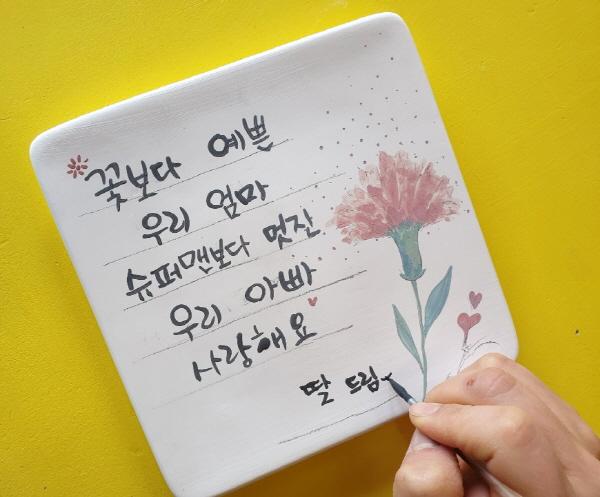 꽃보다 예쁜
우리 엄마
슈퍼맨보다 멋진
우리 아빠
사랑해요
딸 드림